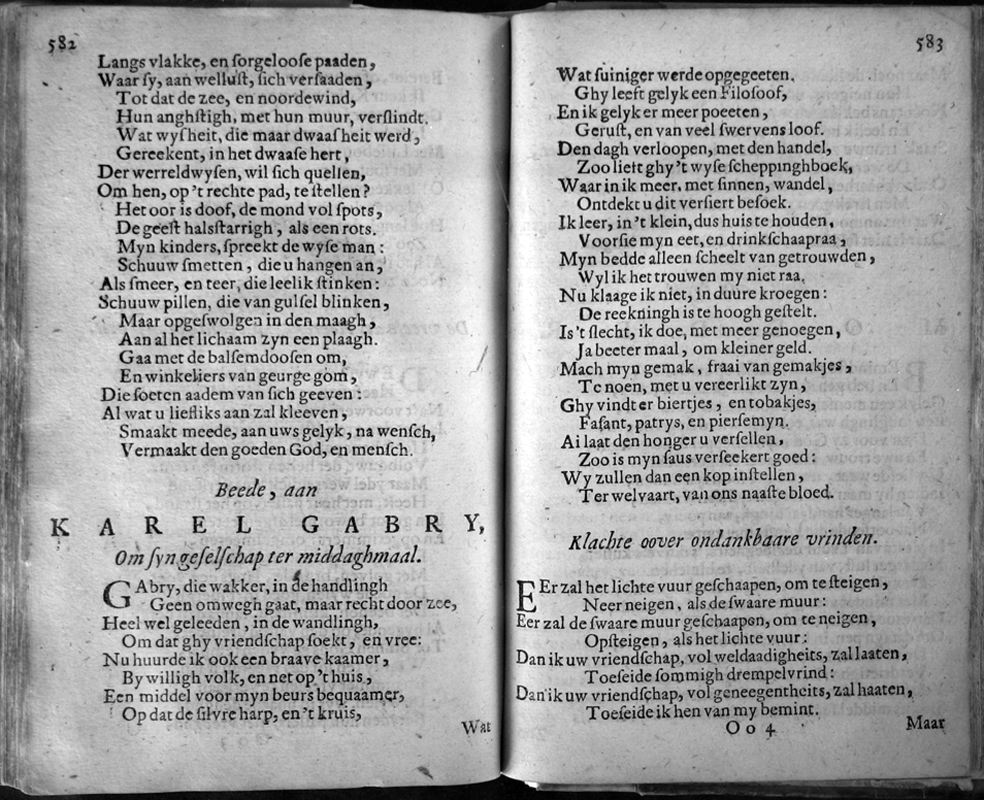 582
Langs vlakke, en ſorgelooſe paaden,
Waar ſy, aan welluſt, ſich verſaaden,
Tot dat de zee, en noordewind,
Hun anghſtigh, met hun muur, verſlindt.
Wat wyſheit, die maar dwaaſheit werd,
Gereekent, in het dwaaſe hert,
Der werreldwyſen, wil ſich quellen,
Om hen, op 't rechte pad, te ſtellen?
Het oor is doof, de mond vol ſpots,
De geeſt halsſtarrigh, als een rots.
Myn kinders, ſpreekt de wyſe man:
Schuuw ſmetten, die u hangen an,
Als ſmeer, en teer, die leelik ſtinken:
Schuuw pillen, die van gulſel blinken,
Maar opgeſwolgen in den maagh,
Aan al het lichaam zyn een plaagh.
Gaa met de balſemdooſen om,
En winkeliers van geurge gom,
Die ſoeten aadem van ſich geeven:
Al wat u liefliks aan zal kleeven,
Smaakt meede, aan uws gelyk, na wenſch,
Vermaakt den goeden God, en menſch.
Beede, aan
KAREL GABRY,
Om ſyn geſelſchap ter middaghmaal.
GAbry, die wakker, in de handlingh
Geen omwegh gaat, maar recht door zee,
Heel wel geleeden, in de wandlingh,
Om dat ghy vriendſchap ſoekt, en vree:
Nu huurde ik ook een braave kaamer,
By willigh volk, en net op 't huis,
Een middel voor myn beurs bequaamer,
Op dat de ſilvre harp, en 't kruis,
Wat
583
Wat ſuiniger werde opgegeeten.
Ghy leeft gelyk een Filoſoof,
En ik gelyk er meer poeeten,
Geruſt, en van veel ſwervens loof.
Den dagh verloopen, met den handel,
Zoo lieſt ghy 't wyſe ſcheppinghboek,
Waar in ik meer, met ſinnen, wandel,
Ontdekt u dit verſiert beſoek.
Ik leer, in 't klein, dus huis te houden,
Voorſie myn eet, en drinkſchaapraa,
Myn bedde alleen ſcheelt van getrouwden,
Wyl ik het trouwen my niet raa.
Nu klaage ik niet, in duure kroegen:
De reekningh is te hoogh geſtelt.
Is 't ſlecht, ik doe, met meer genoegen,
Ja beeter maal, om kleiner geld.
Mach myn gemak, fraai van gemakjes,
Te noen, met u vereerlikt zyn,
Ghy vindt er biertjes, en tobakjes,
Faſant, patrys, en pierſemyn.
Ai laat den honger u verſellen,
Zoo is myn ſaus verſeekert goed:
Wy zullen dan een kop inſtellen,
Ter welvaart, van ons naaſte bloed.
Klachte oover ondankbaare vrinden.
EEr zal het lichte vuur geſchaapen, om te ſteigen,
Neer neigen, als de ſwaare muur:
Eer zal de ſwaare muur geſchaapen, om te neigen,
Opſteigen, als het lichte vuur:
Dan ik uw vriendſchap, vol weldaadigheits, zal laaten,
Toeſeide ſommigh drempelvrind:
Dan ik uw vriendſchap, vol geneegentheits, zal haaten,
Toeſeide ik hen van my bemint.
Oo 4
Maar